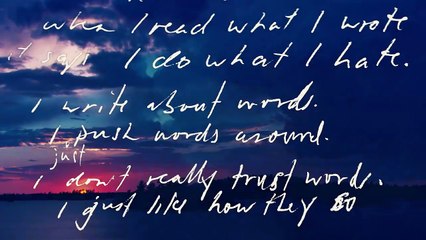 when I read what I wrote
it says I do what I hate.
I write about words.
I push words around.
just
I don't really trust words.
I just like how they so